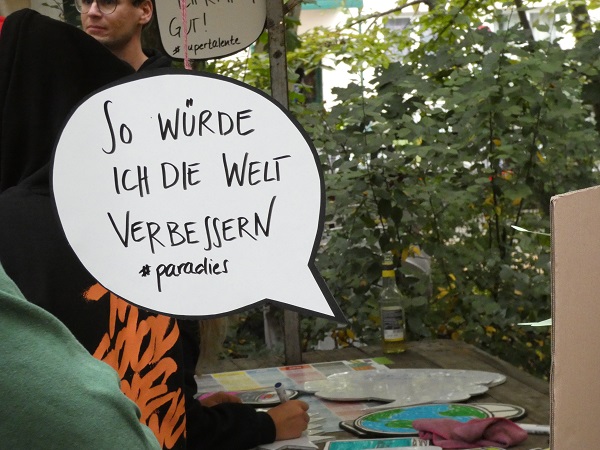 GUT!
#supertalente
SO WÜRDE
ICH DIE WELT
VERBESSERN
#paradies